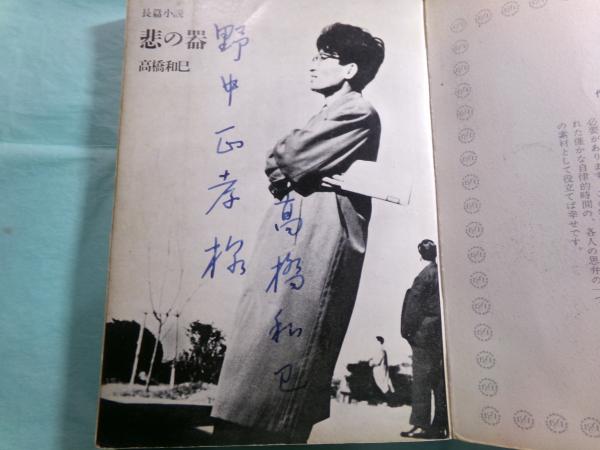 長篇小説
悲の器
高橋和巳
野中正孝様
高橋和巳
必要があります。
れた僅かな自律的時間の、各人の思弁の一つ
の素材として役立てば幸せです。